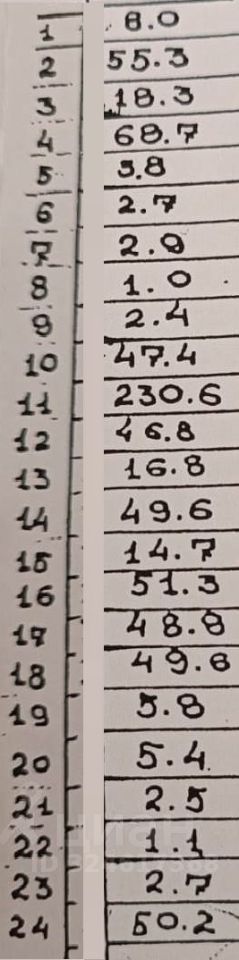 1 8.0
2 55.3
3 18.3
4 68.7
5 5.8
6 2.7
7 2.9
8 1.0
9 2.4
10 47.4
11 230.6
12 46.8
13 16.8
14 49.6
15 14.7
16 51.3
17 48.8
18 49.6
19 5.8
20 5.4
21 2.5
22 1.1
23 2.7
24 50.2